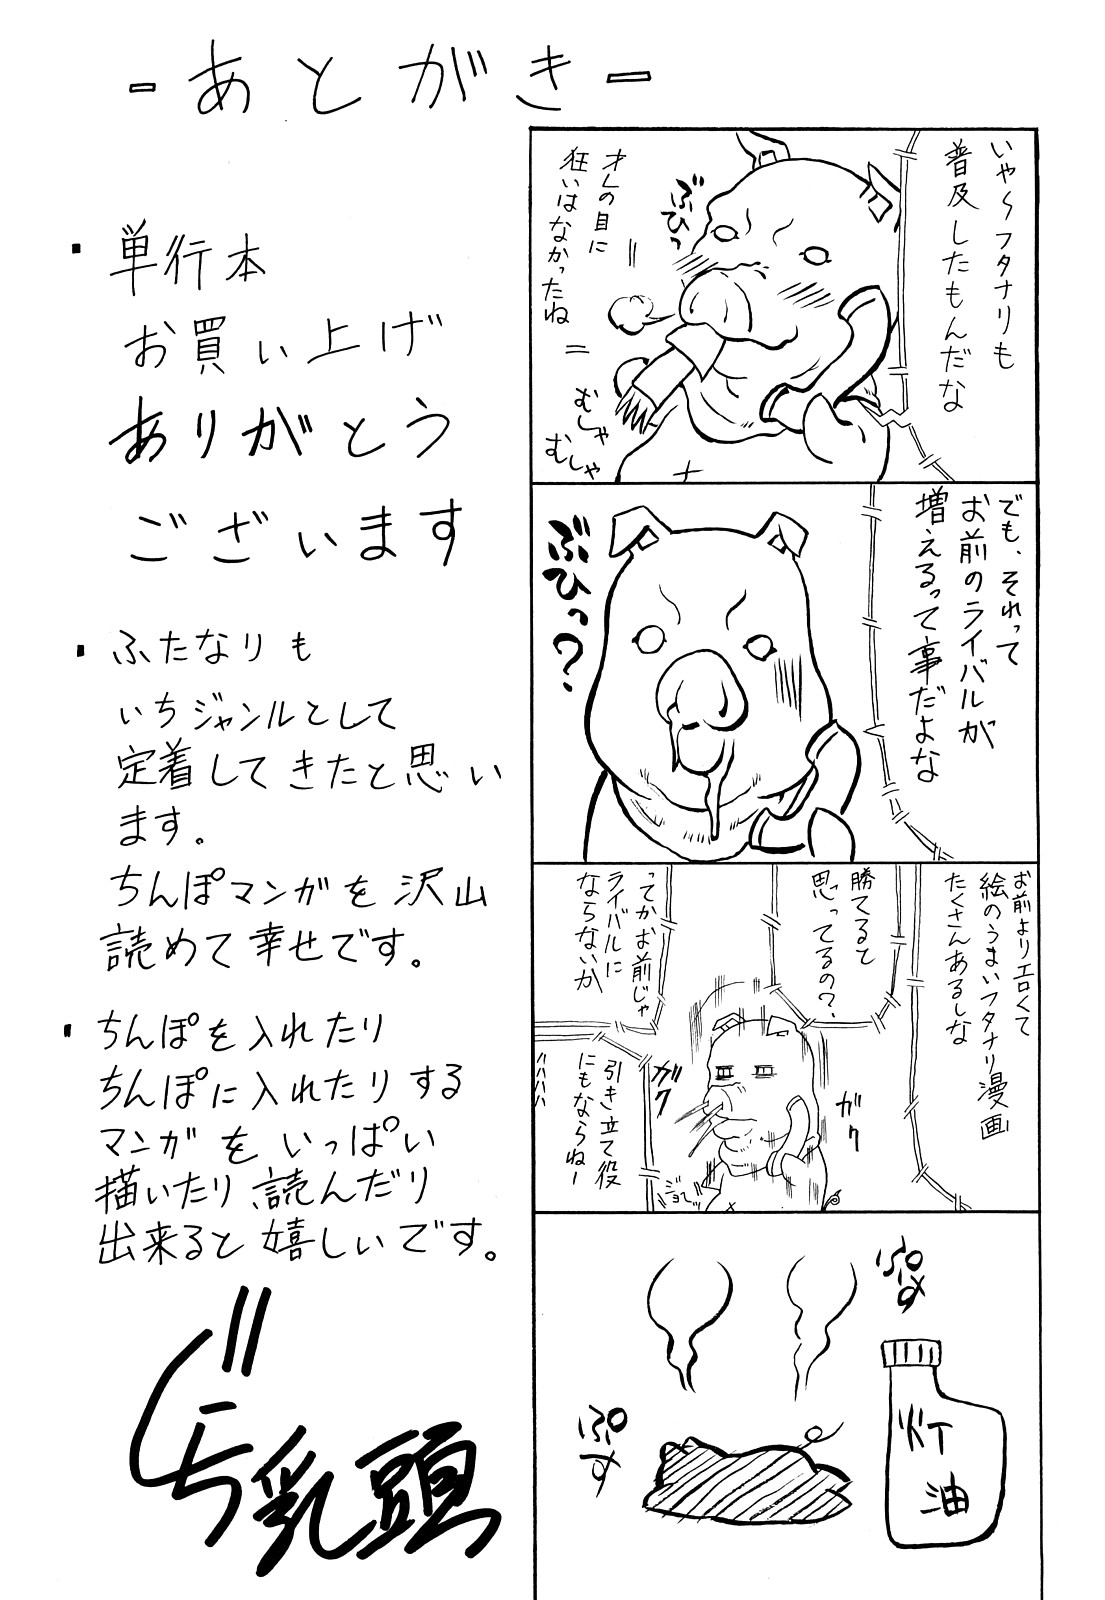 -あとがき-
・単行本
お買い上げ
ありがとう
ございます
・ふたなりも
いちジャンルとして
定着してきたと思い
ます。
ちんぽマンガを沢山
読めて幸せです。
・ちんぽを入れたり
ちんぽに入れたりする
マンガをいっぱい
描いたり、読んだり
出来ると嬉しいです。
乳頭
いや〜フタナリも
普及したもんだな
ぶひっ
オレの目に
狂いはなかったね
むしゃ
むしゃ
でも、それって
お前のライバルが
増えるって事だよな
ぶひっ?
お前よりエロくて
絵のうまいフタナリ漫画
たくさんあるしな
勝てるると
思ってるの?
ってかお前じゃ
ライバルに
ならないか
引き立て役
にもならねー
ハハハハ
ガク
ガク
ジョセッ
ぷす
ぷす
灯
油